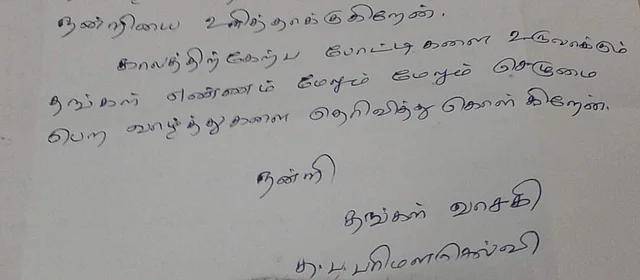 நன்றியை உரித்தாக்குகிறேன்.
காலத்திற்கேற்ப போட்டிகளை உருவாக்கும்
தங்கள் எண்ணம் மேலும் மேலும் செழுமை
பெற வாழ்த்துகளை தெரிவித்து கொள்கிறேன்.
நன்றி
தங்கள் வாசகி
த.ப.பரிமளசெல்வி